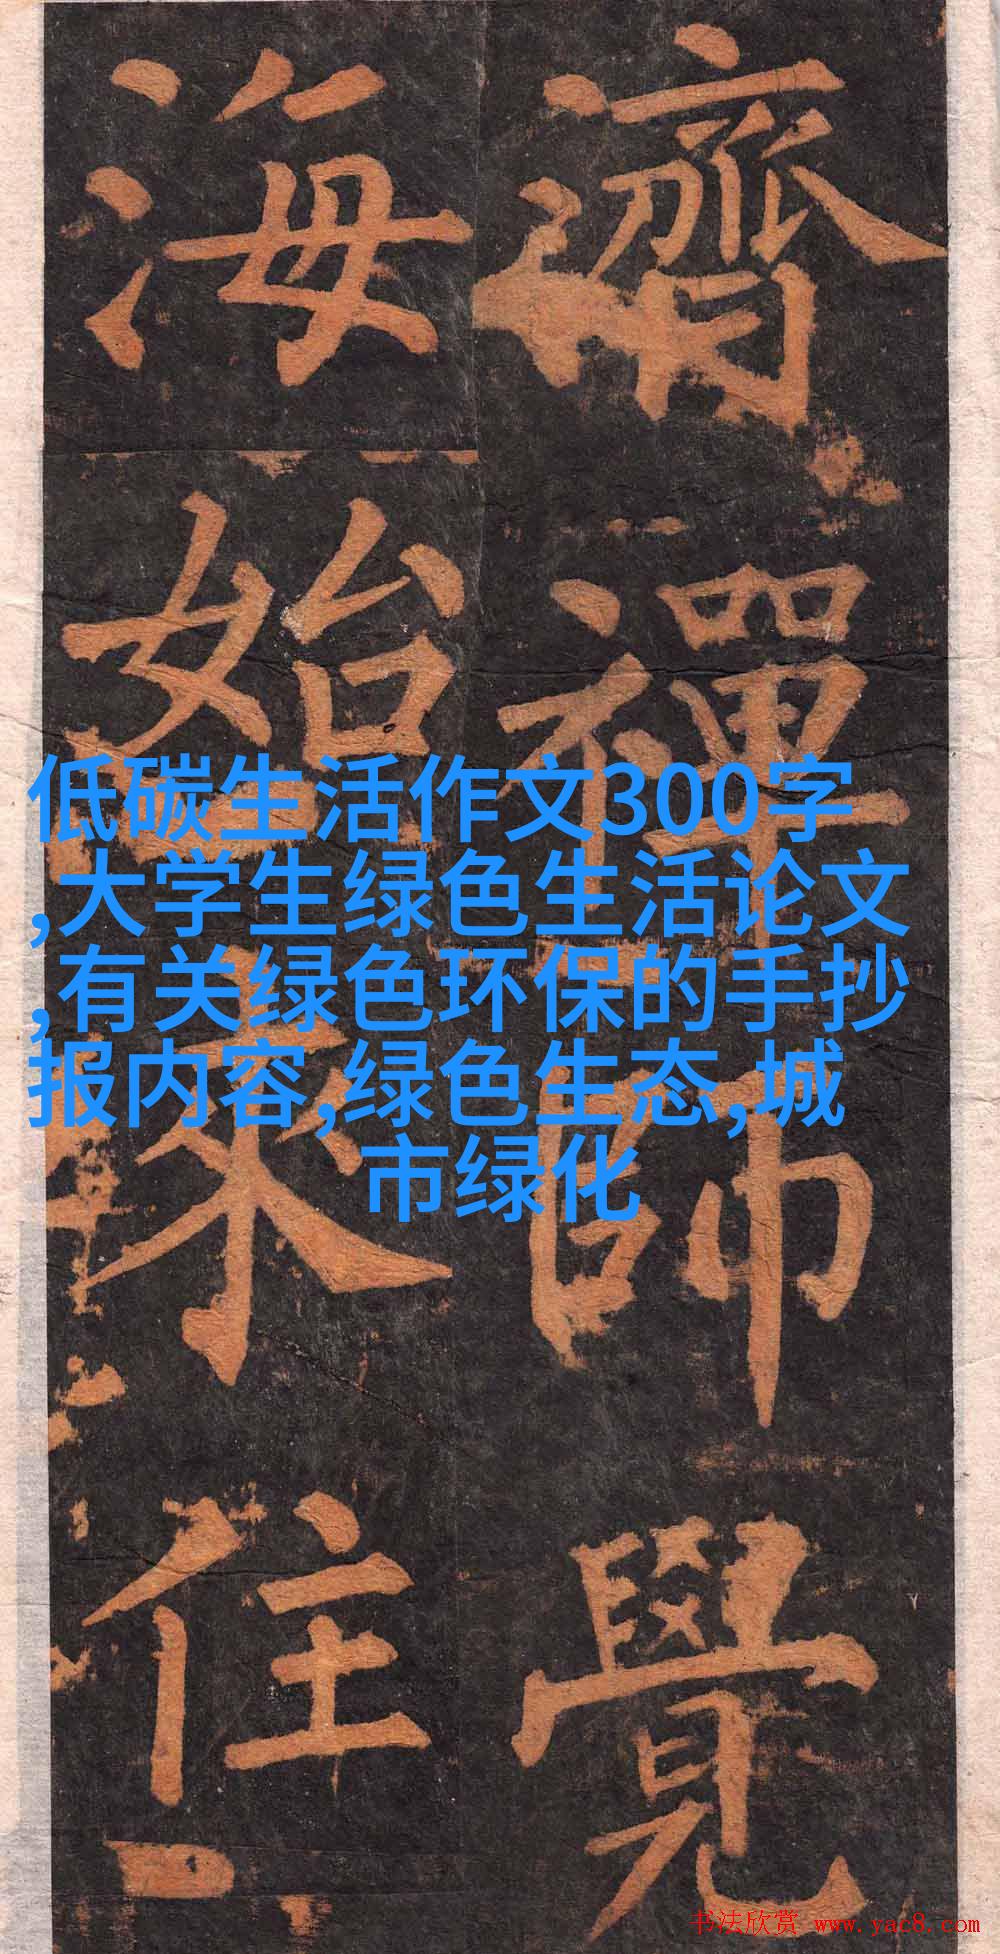 濟禪師覺
海始来住
低碳生活作文300字
,大学生绿色生活论文
,有关绿色环保的手抄
报内容,绿色生态,城
市绿化
书法欣赏 www.yac8.com